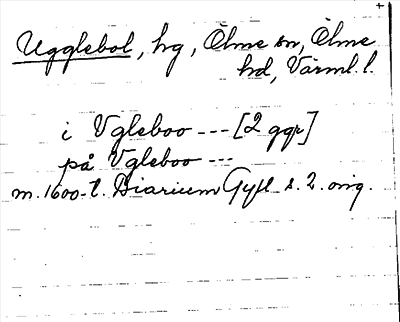 +
Ugglebol, hg, Ölme sn, Ölme
hd, Värml. l.
i Vgleboo --- [2 ggr]
på Vgleboo ---
m. 1600-t. Diarium Gyll s. 2. orig.